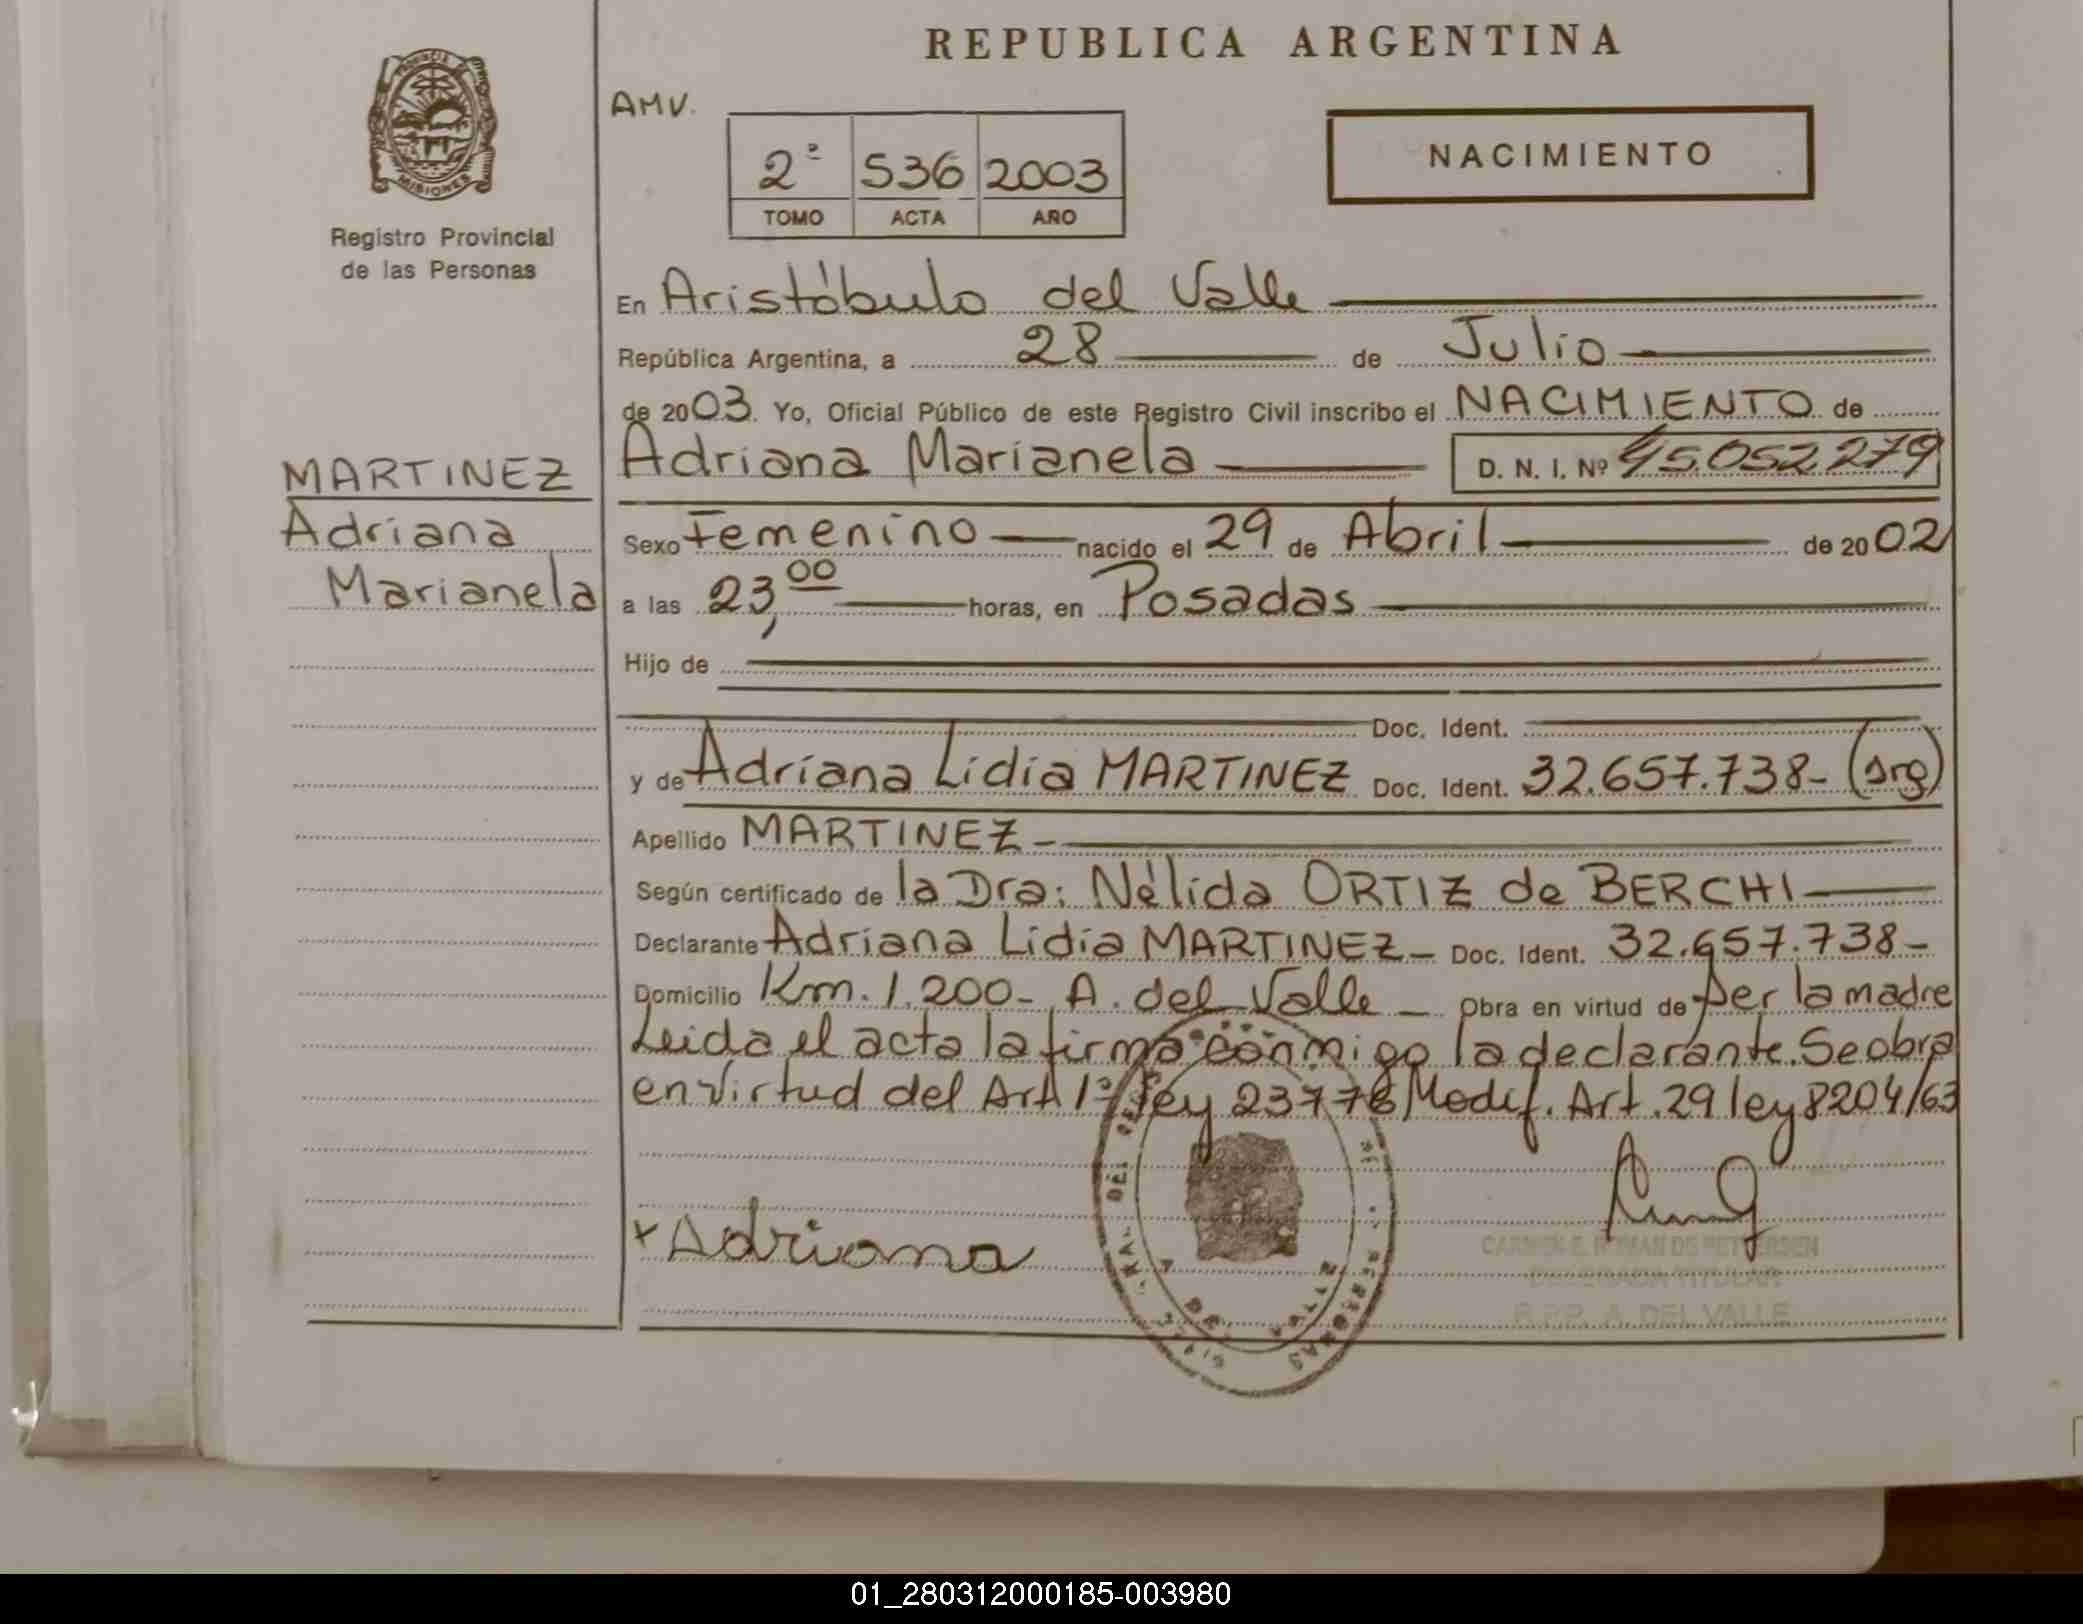 REPUBLICA ARGENTINA
PROVINCIA DE
MISIONES
Registro Provincial
de las Personas
AMV.
2º 536 2003
TOMO ACTA AÑO
NACIMIENTO
En Aristóbulo del Valle
República Argentina, a 28 de Julio
de 2003. Yo, Oficial Público de este Registro Civil inscribo el NACIMIENTO de
Adriana Marianela D. N. I. Nº 45.052.279
MARTINEZ
Adriana
Marianela
Sexo Femenino nacido el 29 de Abril de 2002
a las 23,00 horas, en Posadas
Hijo de
Doc. Ident.
y de Adriana Lidia MARTINEZ Doc. Ident. 32.657.738- (arg)
Apellido MARTINEZ-
Según certificado de la Dra: Nélida ORTIZ de BERCHI
Declarante Adriana Lidia MARTINEZ- Doc. Ident. 32.657.738-
Domicilio Km. 1.200- A. del Valle - Obra en virtud de ser la madre
Leida el acta la firma conmigo la declarante. Se obra
en virtud del Art 1º ley 23776 Modif. Art. 29 ley 8204/63
x Adriana
DELEGADA TITULAR
R.P.P. A. DEL VALLE
01_280312000185-003980